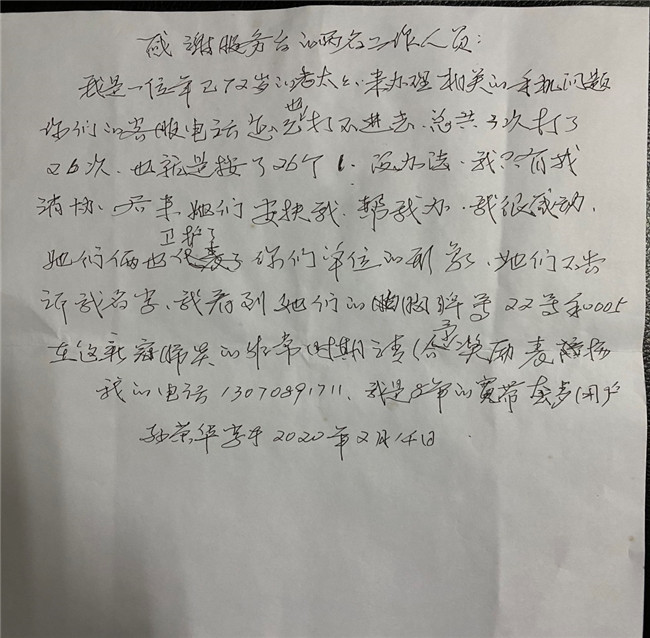 感谢服务台的两名工作人员：
我是一位年已72岁的老太太来办理相关的手机问题
你们的客服电话怎也打不进去、总共3次打了
26次、也就是按了26个1、没办法、我只有找
消协、后来她们安抚我、帮我办、我很感动、
她们俩也卫护了你们单位的形象、她们不告
诉我名字、我看到她们的胸牌号22号和005
在这新冠肺炎的非常时期请给予奖励表扬
我的电话13070891711、我是8年的宽带套多用户
孙荣华写于2020年2月14日